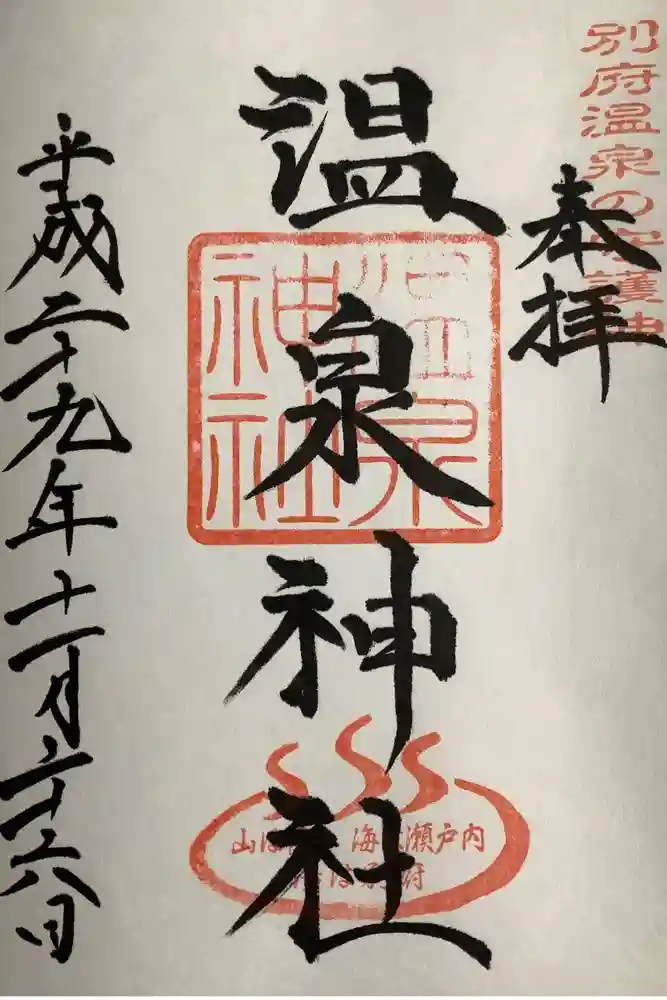 別府温泉の守護神
奉拝
温泉神社
温泉
神社
山は 海は瀬戸内
は別府
平成二十九年十一月二十六日